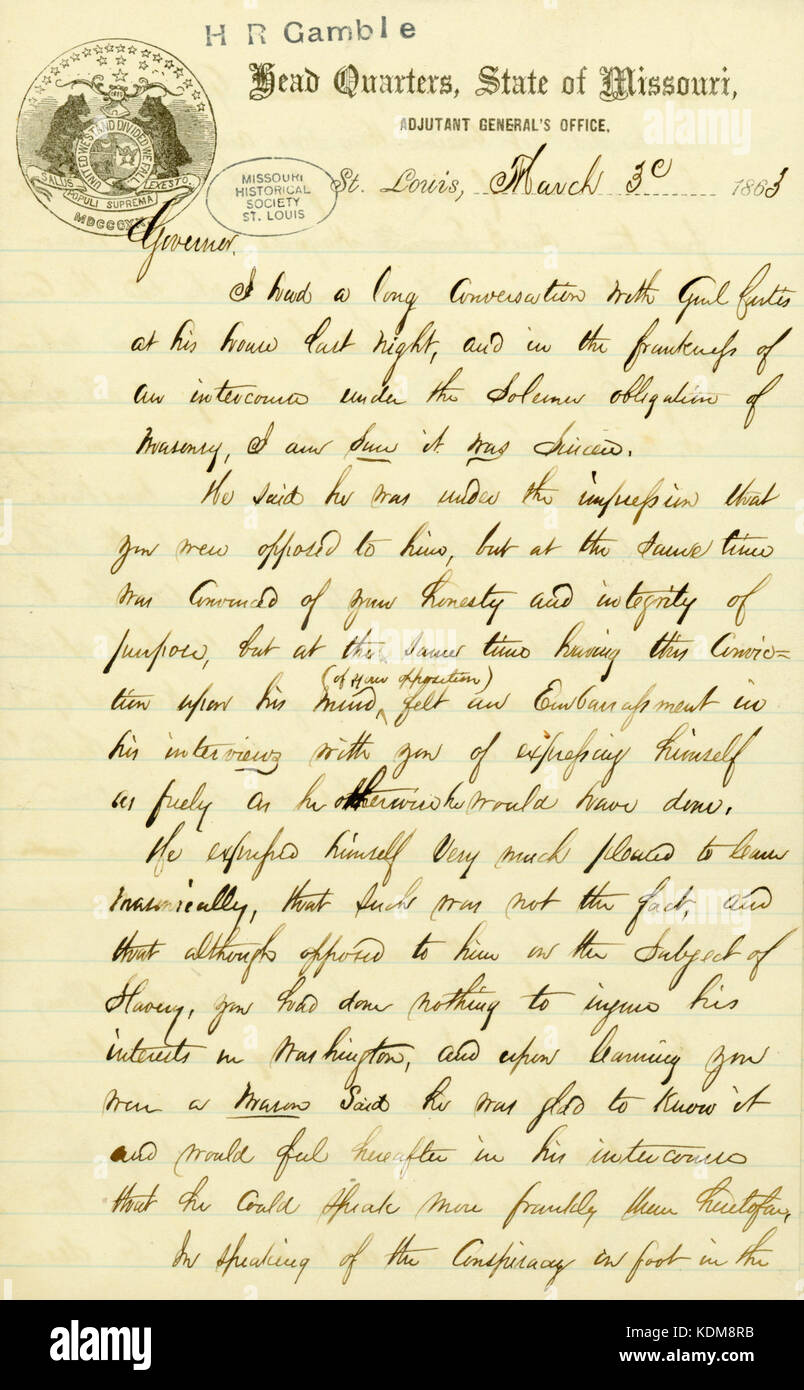 H R Gamble
Head Quarters, State of Missouri,
ADJUTANT GENERAL'S OFFICE.
UNITED WE STAND DIVIDED WE FALL
SALUS POPULI SUPREMA LEX ESTO
MDCCCXX
MISSOURI
HISTORICAL
SOCIETY
ST. LOUIS
St. Louis, March 3d 1863
Governor.
I had a long Conversation with Genl Curtis
at his house last night, and in the frankness of
an intercourse under the Solemn obligation of
Masonry, I am sure it was Sincere.
He said he was under the impression that
you were opposed to him, but at the same time
was Convinced of your honesty and integrity of
purpose, but at the same time having this Convic=
(of your opposition)
tion upon his mind, felt an Embarrassment in
his interviews with you of expressing himself
as freely as he otherwise he would have done.
He expressed himself Very much pleased to learn
masonically, that such was not the fact, and
that although opposed to him on the Subject of
Slavery, you had done nothing to injure his
interests in Washington, and upon learning you
were a Mason Said he was glad to Know it
and would feel hereafter in his intercourse
that he Could speak more frankly than heretofore,
In speaking of the Conspiracy on foot in the
alamy
Image ID: KDM8RB
www.alamy.com